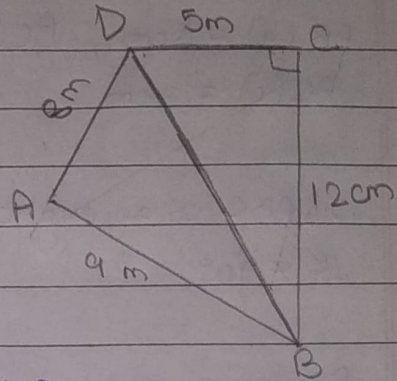 D 5m C
8m
A
12cm
9 m
B